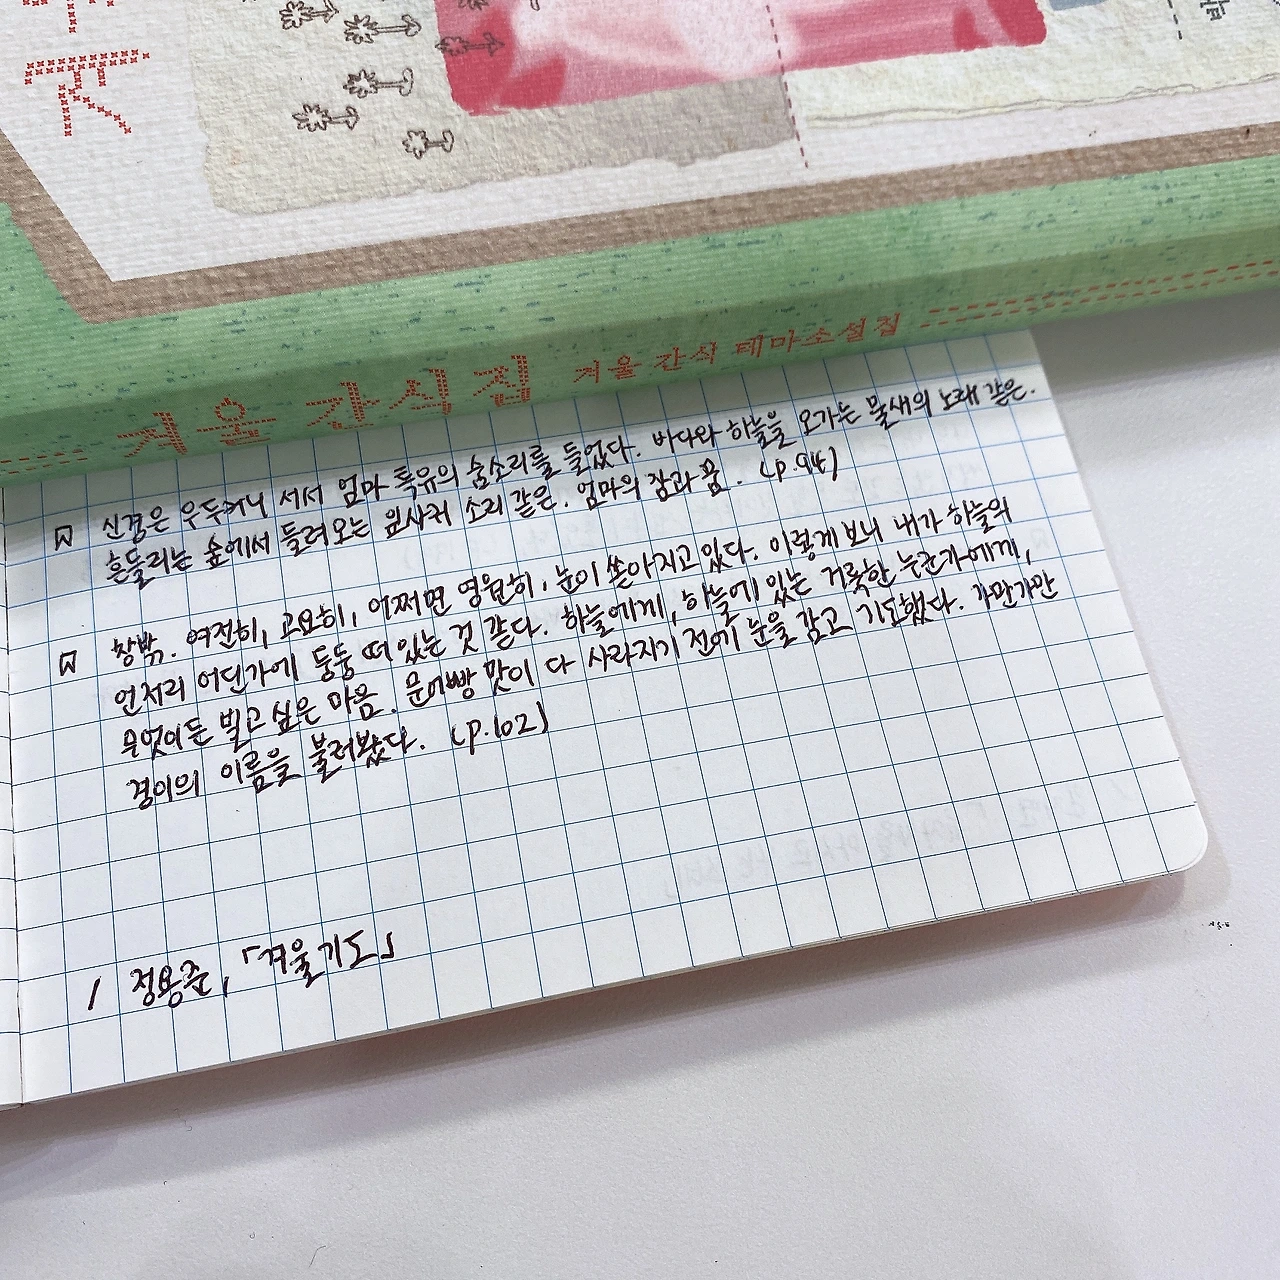 겨울 간식집 겨울 간식 테마소설집
신경은 우두커니 서서 엄마 특유의 숨소리를 들었다. 바다와 하늘을 오가는 물새의 노래 같은.
흔들리는 숲에서 들려오는 잎사귀 소리 같은. 엄마의 잠과 꿈. (p.94)
창밖. 여전히, 고요히, 어쩌면 영원히, 눈이 쏟아지고 있다. 이렇게 보니 내가 하늘의
언저리 어딘가에 둥둥 떠 있는 것 같다. 하늘에게, 하늘에 있는 거룩한 누군가에게,
무엇이든 빌고 싶은 마음. 문어빵 맛이 다 사라지기 전에 눈을 감고 기도했다. 가만가만
경이의 이름을 불러봤다. (p.102)
/ 정용준, 「겨울 기도」